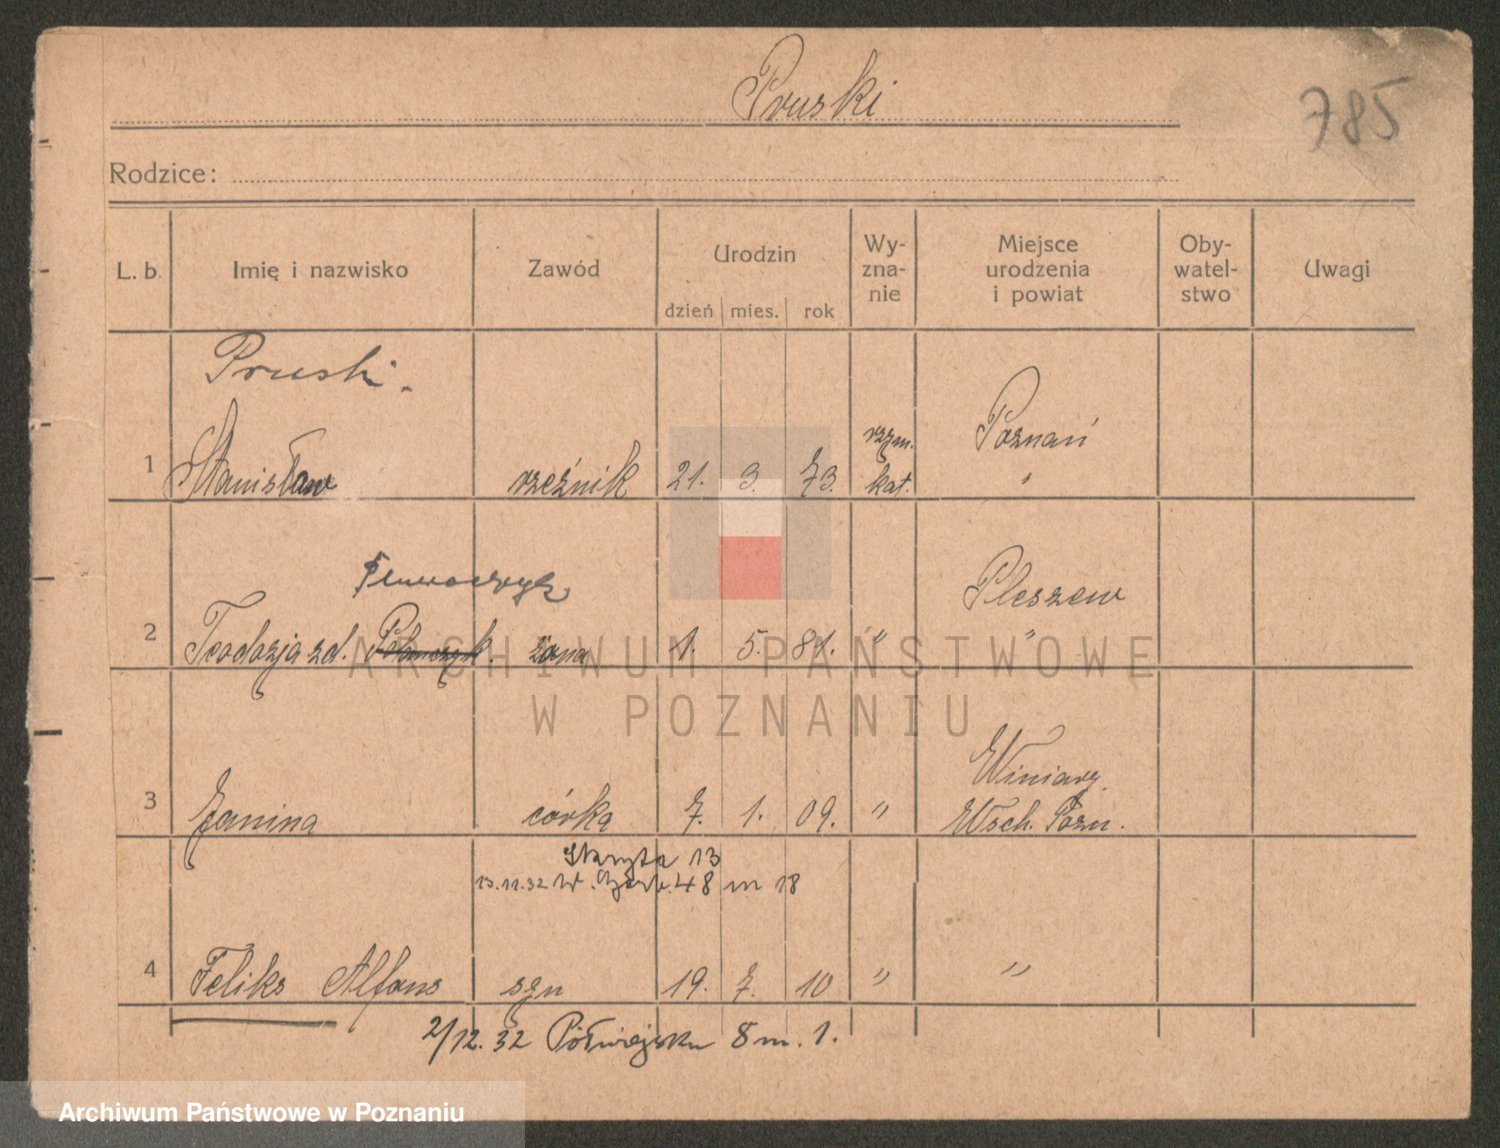 Pruski
785
Rodzice:
L. b. Imię i nazwisko Zawód Urodzin dzień mies. rok Wy-zna-nie Miejsce urodzenia i powiat Oby-watel-stwo Uwagi
Pruski.
1 Stanisław rzeźnik 21. 3. 73. rzym. kat. Poznań "
2 Teodozja zd. żona 1. 5. 81. " Pleszew "
3 Janina córka 7. 1. 09. " Winiary Wsch. Pozn.
Skryta 13
13.11.32 W. Garb. 48 m 18
4 Feliks Alfons syn 19. 7. 10 " "
2/12. 32 Półwiejska 8 m. 1.
ARCHIWUM PAŃSTWOWE
W POZNANIU
Archiwum Państwowe w Poznaniu